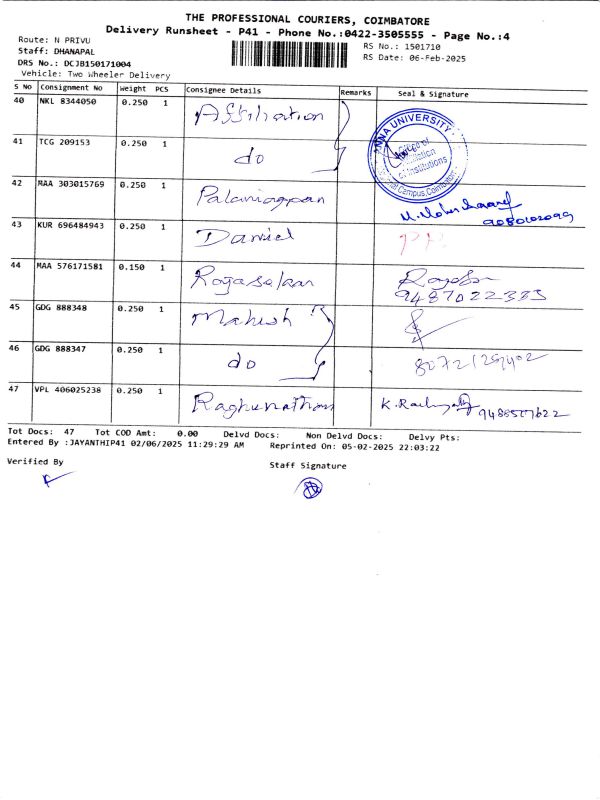 THE PROFESSIONAL COURIERS, COIMBATORE
Delivery Runsheet - P41 - Phone No.:0422-3505555 - Page No.:4
Route: N PRIVU
RS No.: 1501710
Staff: DHANAPAL
RS Date: 06-Feb-2025
DRS No.: DCJB150171004
Vehicle: Two Wheeler Delivery
S No Consignment No Weight PCS Consignee Details Remarks Seal & Signature
40 NKL 8344050 0.250 1 Affiliation
ANNA UNIVERSITY
of Institutions
Campus, Coimbatore
41 TCG 209153 0.250 1 do
42 MAA 303015769 0.250 1 Palaniappan
9080102099
43 KUR 696484943 0.250 1 Daniel
44 MAA 576171581 0.150 1 Rajasekar
9487022333
45 GDG 888348 0.250 1 Mahesh
46 GDG 888347 0.250 1 do
47 VPL 406025238 0.250 1 Raghunathan
Tot Docs: 47 Tot COD Amt: 0.00 Delvd Docs: Non Delvd Docs: Delvy Pts:
Entered By :JAYANTHIP41 02/06/2025 11:29:29 AM Reprinted On: 05-02-2025 22:03:22
Verified By
Staff Signature